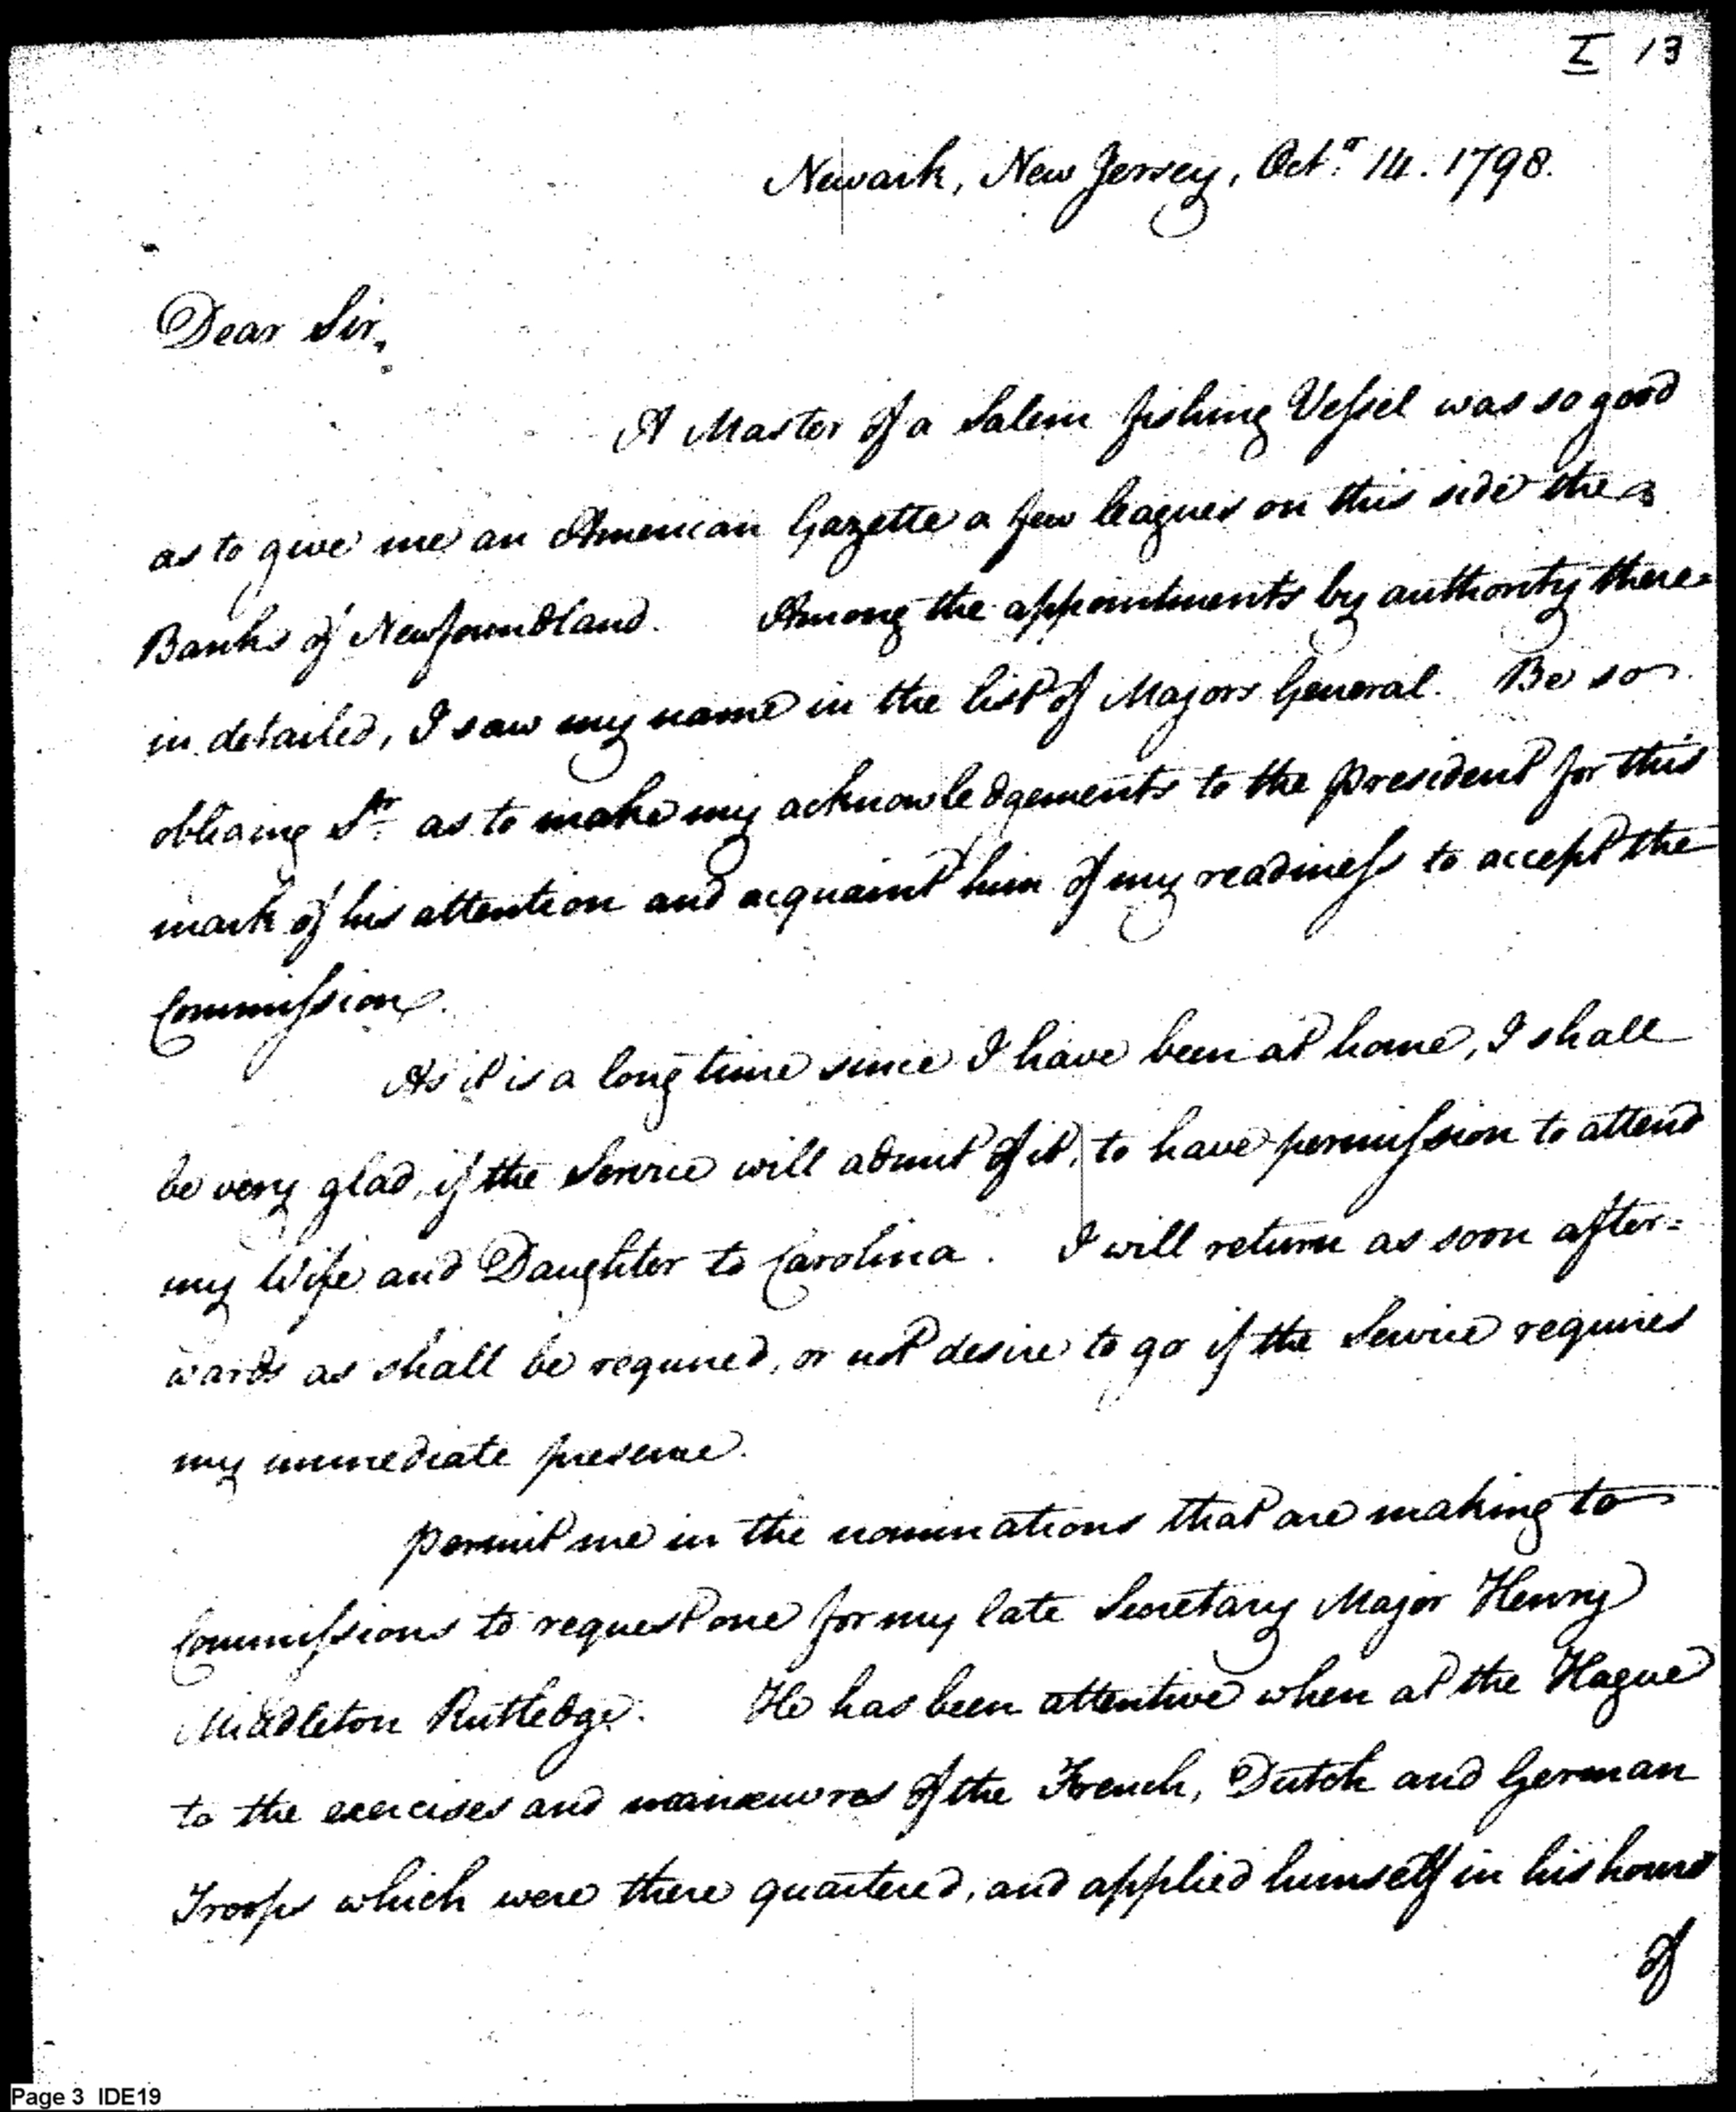 I 13
Newark, New Jersey, Octr. 14. 1798.
Dear Sir,
A Master of a Salem fishing Vessel was so good
as to give me an American Gazette a few leagues on this side the
Banks of Newfoundland. Among the appointments by authority there=
in detailed, I saw my name in the list of Majors General. Be so
obliging Sr. as to make my acknowledgements to the President for this
mark of his attention and acquaint him of my readiness to accept the
Commission.
As it is a long time since I have been at home, I shall
be very glad, if the Service will admit of it, to have permission to attend
my Wife and Daughter to Carolina. I will return as soon after=
wards as shall be required, or not desire to go if the Service requires
my immediate presence.
Permit me in the nominations that are making to
Commissions to request one for my late Secretary Major Henry
Middleton Rutledge. He has been attentive when at the Hague
to the exercises and manœuvres of the French, Dutch and German
Troops which were there quartered, and applied himself in his hours
of
Page 3 IDE19